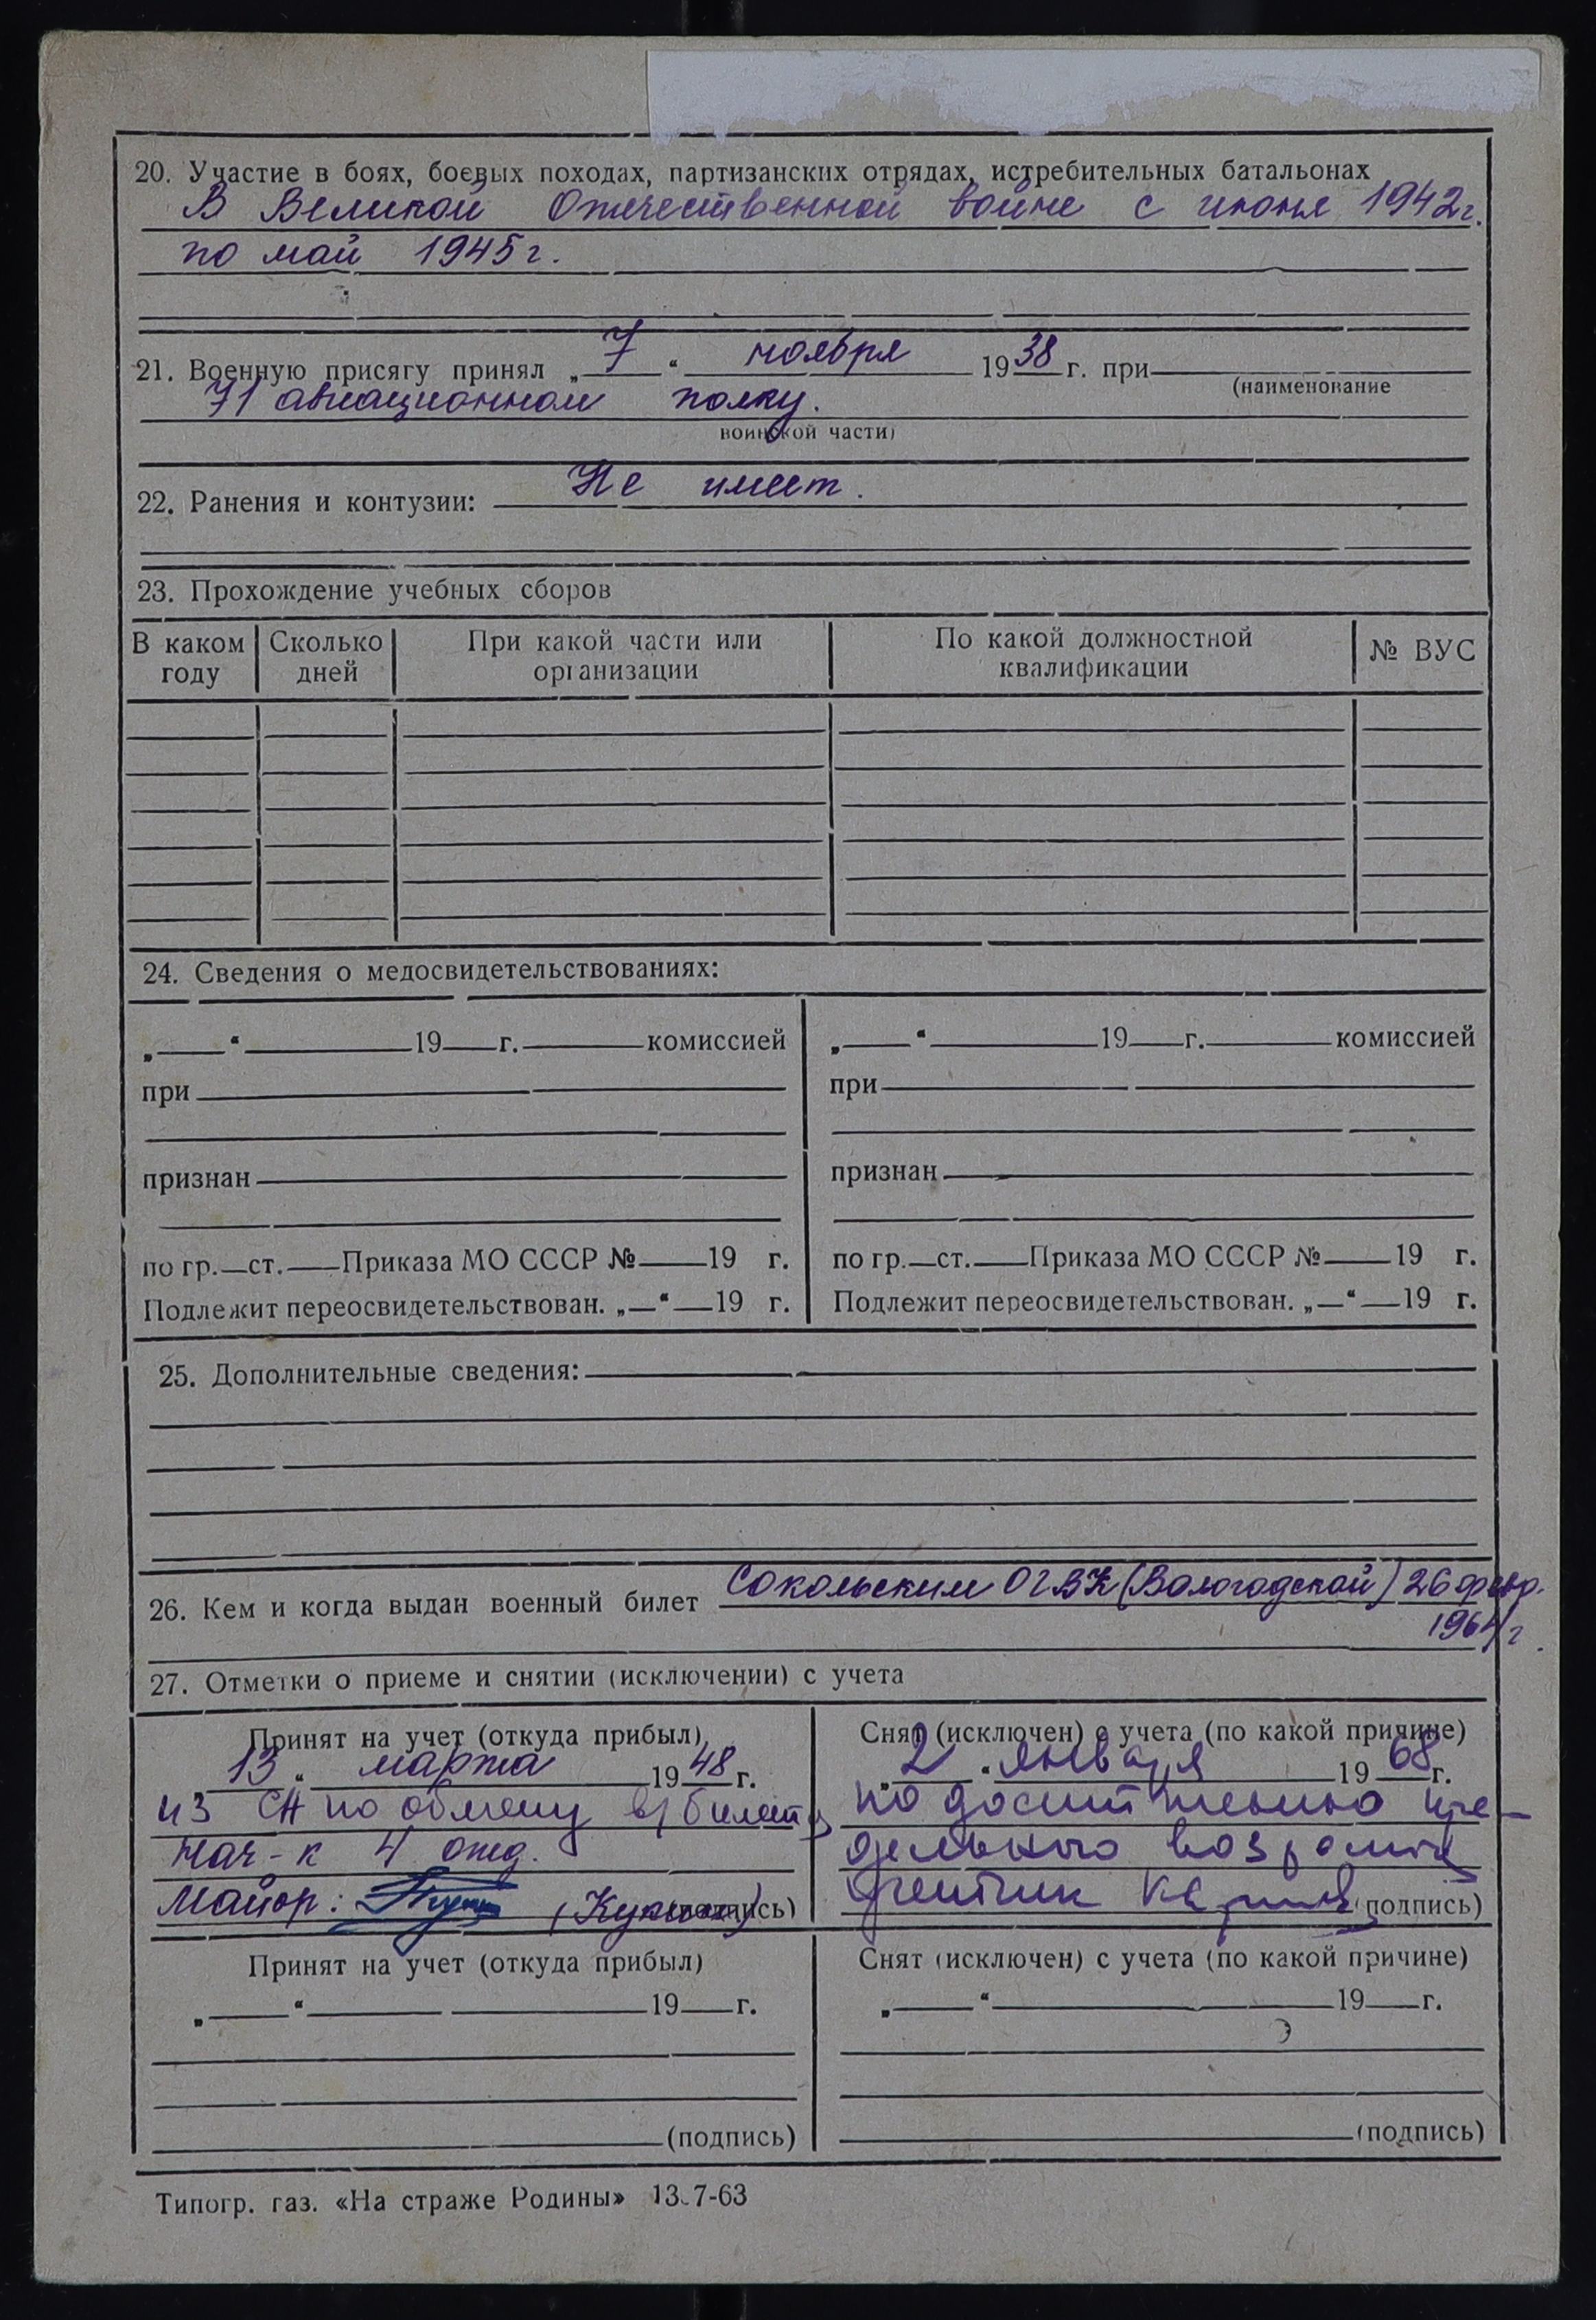 20. Участие в боях, боевых походах, партизанских отрядах, истребительных батальонах
В Великой Отечественной войне с июня 1942 г.
по май 1945 г.
21. Военную присягу принял „ 7 “ ноября 1938 г. при
(наименование
71 авиационном полку.
воинской части)
22. Ранения и контузии: Не имеет.
23. Прохождение учебных сборов
В каком году Сколько дней При какой части или организации По какой должностной квалификации № ВУС
24. Сведения о медосвидетельствованиях:
„ “ 19 г. комиссией
при
признан
по гр. ст. Приказа МО СССР № 19 г.
Подлежит переосвидетельствован. „ “ 19 г.
„ “ 19 г. комиссией
при
признан
по гр. ст. Приказа МО СССР № 19 г.
Подлежит переосвидетельствован. „ “ 19 г.
25. Дополнительные сведения:
26. Кем и когда выдан военный билет Сокольским ОГВК (Вологодской) 26 февр.
1964 г.
27. Отметки о приеме и снятии (исключении) с учета
Принят на учет (откуда прибыл)
„ 13 “ марта 1948 г.
из СА по обмену в/билета
Нач-к 4 отд.
Майор: (подпись)
Снят (исключен) с учета (по какой причине)
„ 2 “ января 1968 г.
по достижению пре-
дельного возраста
(подпись)
Принят на учет (откуда прибыл)
„ “ 19 г.
(подпись)
Снят (исключен) с учета (по какой причине)
„ “ 19 г.
(подпись)
Типогр. газ. «На страже Родины» 13.7-63